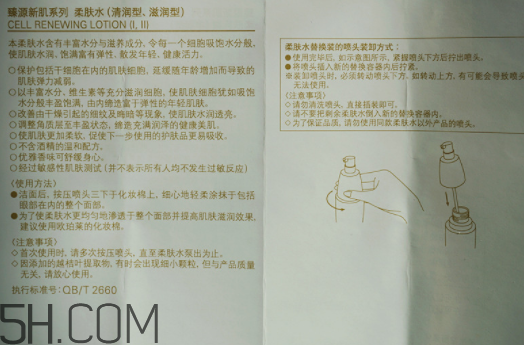 臻源新肌系列 柔肤水(清润型、滋润型)
CELL RENEWING LOTION (I, II)
本柔肤水含有丰富水分与滋养成分,令每一个细胞吸饱水分般,
使肌肤水润、饱满富有弹性,散发年轻、健康活力。
○保护包括干细胞在内的肌肤细胞,延缓随年龄增加而导致的
肌肤弹力减弱。
○以丰富水分、维生素等充分滋润细胞,使肌肤细胞犹如吸饱
水分般丰盈饱满,由内缔造富于弹性的年轻肌肤。
○改善由干燥引起的细纹及晦暗等现象,使肌肤水润透亮。
○调整角质层至丰盈状态,缔造充满润泽的健康美肌。
○使肌肤更加柔软,促使下一步使用的护肤品更易吸收。
○不含酒精的温和配方。
○优雅香味可舒缓身心。
○经过敏感性肌肤测试(并不表示所有人均不发生过敏反应)
〈使用方法〉
●洁面后,按压喷头三下于化妆棉上,细心地轻柔涂抹于包括
眼部在内的整个面部。
●为了使柔肤水更均匀地渗透于整个面部并提高肌肤滋润效果,
建议使用欧珀莱的化妆棉。
〈注意事项〉
◇首次使用时,请多次按压喷头,直至柔肤水泵出为止。
◇因添加的越桔叶提取物,有时会出现细小颗粒,但与产品质量
无关,请放心使用。
执行标准号:QB/T 2660
柔肤水替换装的喷头装卸方式:
●使用完毕后,如示意图所示,紧握喷头下方后拧出喷头。
●将喷头插入新的替换容器内后拧紧。
※装卸喷头时,必须转动喷头下方,如转动上方,有可能会导致喷头
无法使用。
〈注意事项〉
◇请勿清洗喷头,直接插装即可。
◇请不要把剩余柔肤水倒入新的替换容器内。
◇为了保证品质,请勿使用同款柔肤水以外产品的喷头。
5H.COM